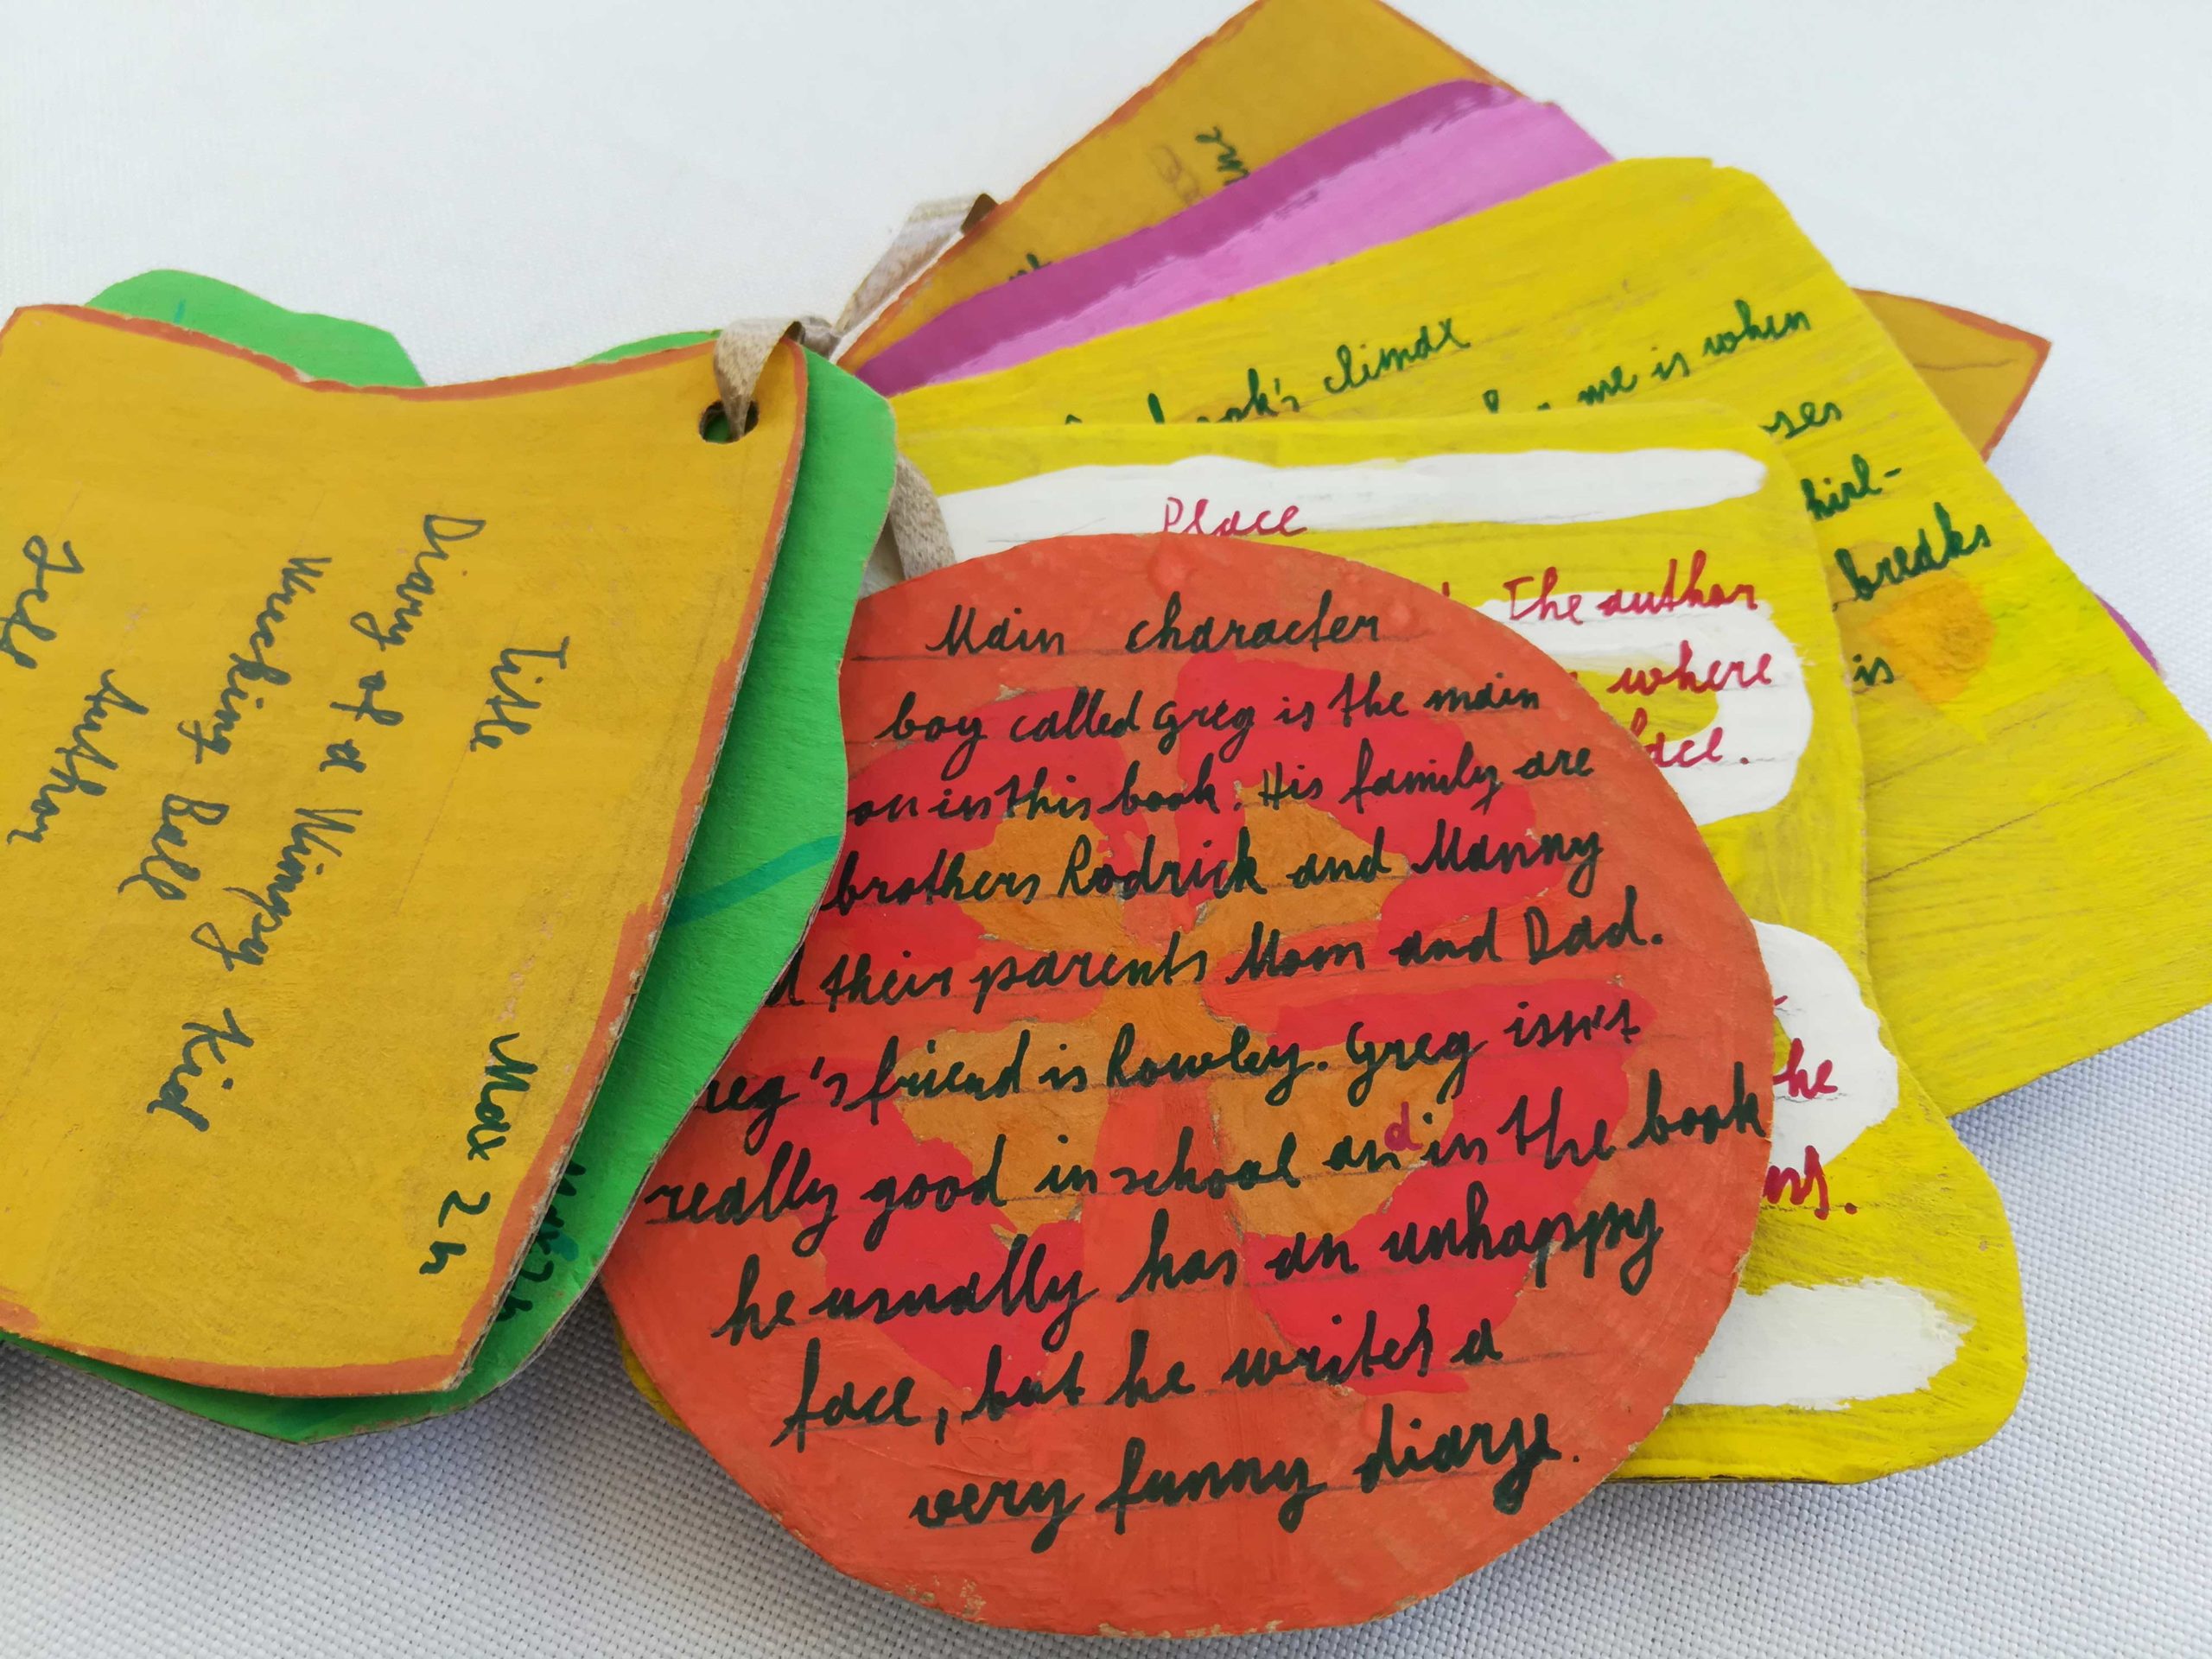 Title
Diary of a Wimpy Kid
Wrecking Ball
Author
Jeff
Max 2h
Main character
boy called Greg is the main
on in this book. His family are
brothers Rodrick and Manny
d their parents Mom and Dad.
reg's friend is Rowley. Greg isn't
really good in school and in the book
he usually has an unhappy
face, but he writes a
very funny diary.
Place
The author
where
lace.
he
book's climax
me is when
ses
hirl-
breaks
is